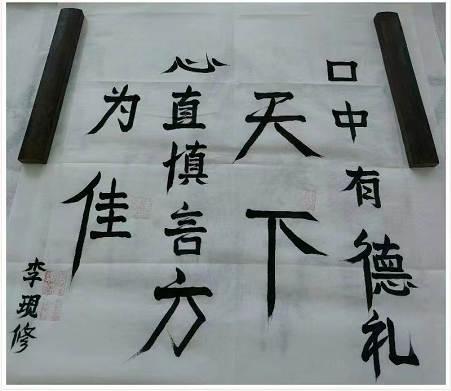 口中有德礼
天下
心直慎言方
为佳
李现修